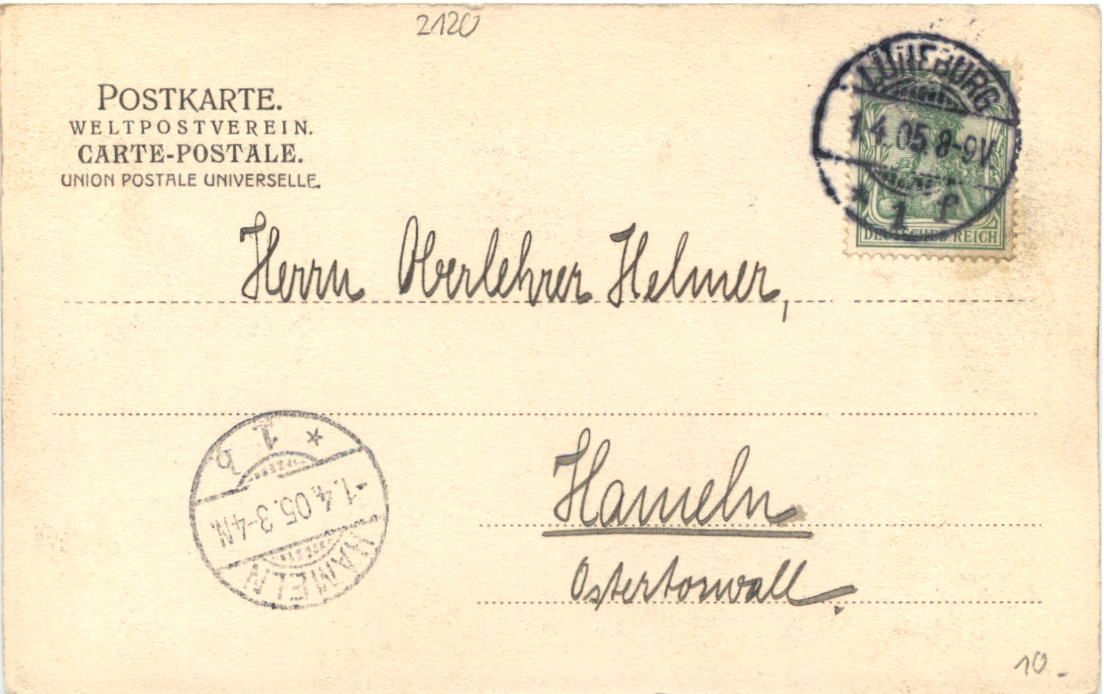 2120
POSTKARTE.
WELTPOSTVEREIN.
CARTE-POSTALE.
UNION POSTALE UNIVERSELLE.
LÜNEBURG
1.4.05.8-9V
* 1 f
DEUTSCHES REICH
Herrn Oberlehrer Helmer,
HAMELN
-1.4.05.3-4N.
* 1 b
Hameln
Ostertorwall.
10.-